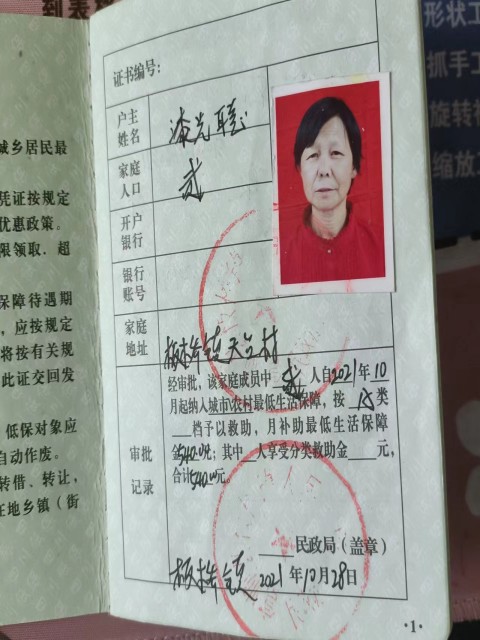 到表
形状工
抓手工
旋转
缩放
城乡居民最
凭证按规定
优惠政策。
限领取.超
保障待遇期
,应按规定
将按有关规
此证交回发
.低保对象应
自动作废。
转借、转让,
在地乡镇(街
证书编号:
户主
姓名
家庭
人口
贰
开户
银行
银行
账号
家庭
地址
板桥镇天台村
审批
记录
经审批,该家庭成员中 贰 人自2021年10
月起纳入城市农村最低生活保障,按 B 类
档予以救助,月补助最低生活保障
金540元;其中 人享受分类救助金 元,
合计540.00元。
民政局(盖章)
2021年10月28日
·1·